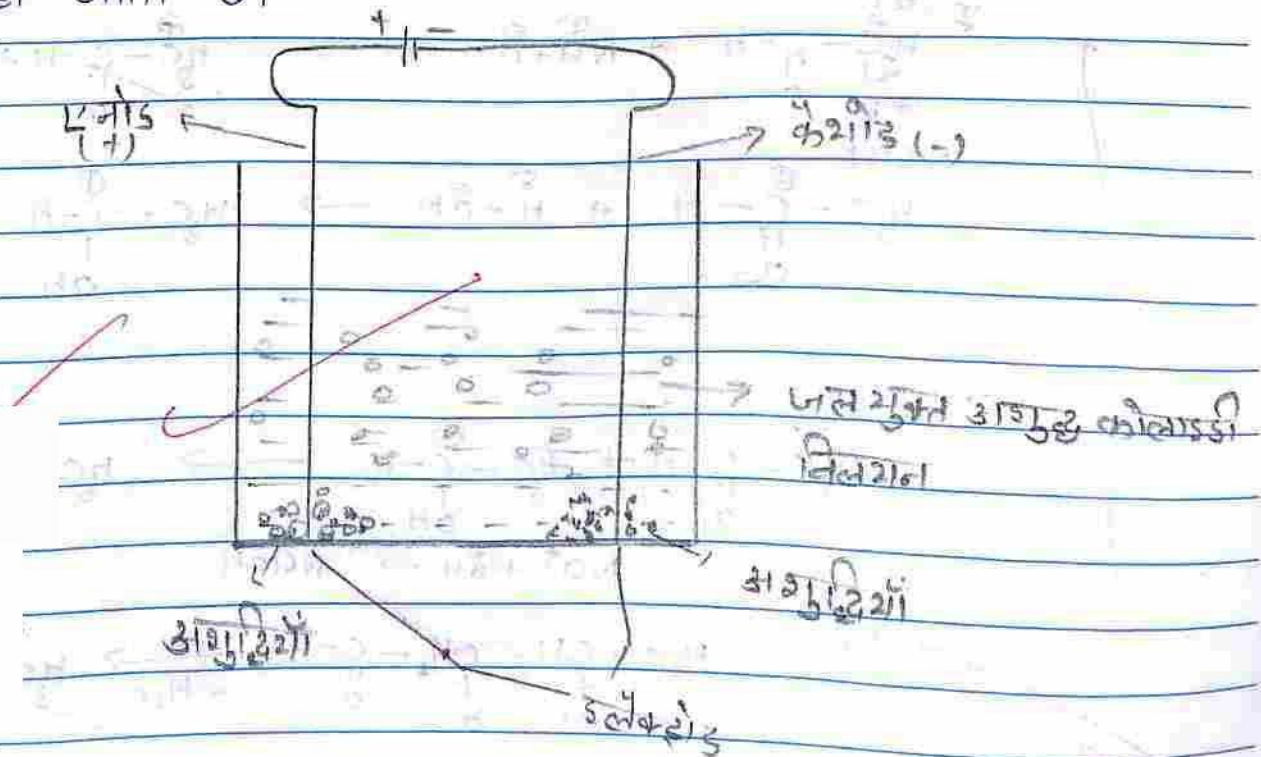 + -
एनोड
(+)
कैथोड (-)
जल युक्त अशुद्ध कोलाइडी
विलयन
अशुद्धियाँ
अशुद्धियाँ
इलैक्ट्रोड